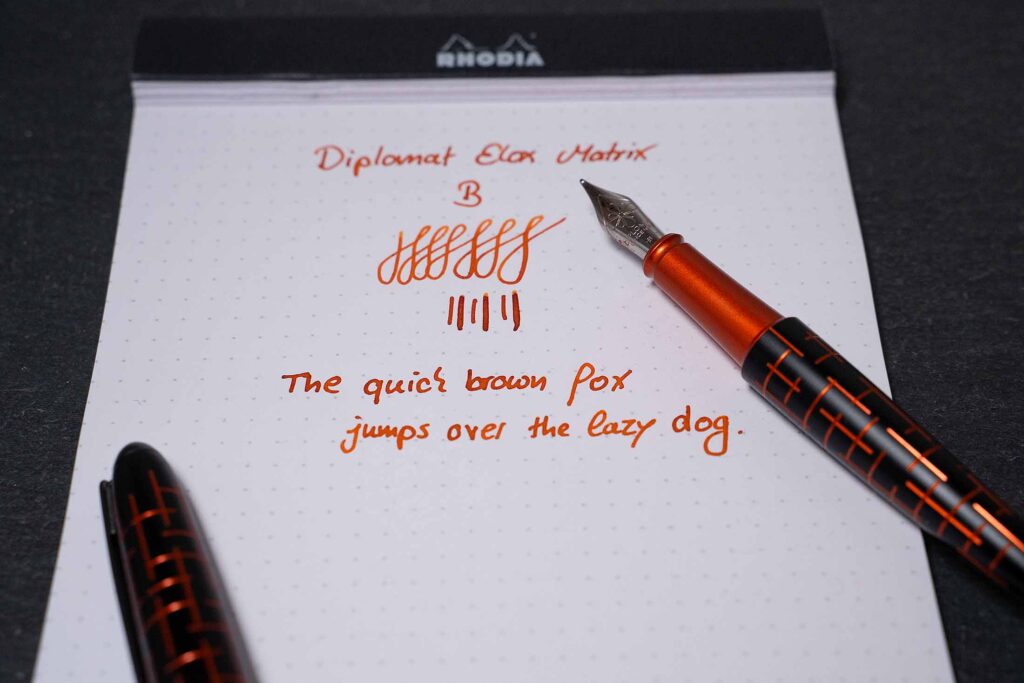 RHODIA
Diplomat Elox Matrix
B
The quick brown fox
jumps over the lazy dog.